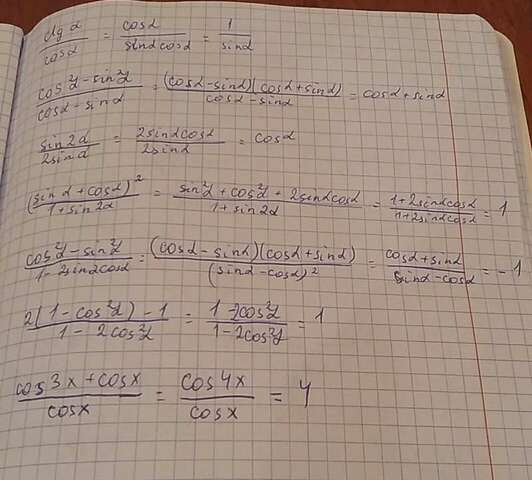 ctg α / cos α = cos α / sin α cos α = 1 / sin α
cos²α - sin²α / cos α - sin α = (cos α - sin α)(cos α + sin α) / cos α - sin α = cos α + sin α
sin 2α / 2 sin α = 2 sin α cos α / 2 sin α = cos α
(sin α + cos α)² / 1 + sin 2α = sin²α + cos²α + 2 sin α cos α / 1 + sin 2α = 1 + 2 sin α cos α / 1 + 2 sin α cos α = 1
cos²α - sin²α / 1 - 2 sin α cos α = (cos α - sin α)(cos α + sin α) / (sin α - cos α)² = cos α + sin α / sin α - cos α = -1
2(1 - cos²α) - 1 / 1 - 2cos²α = 1 - 2cos²α / 1 - 2cos²α = 1
cos 3x + cos x / cos x = cos 4x / cos x = 4